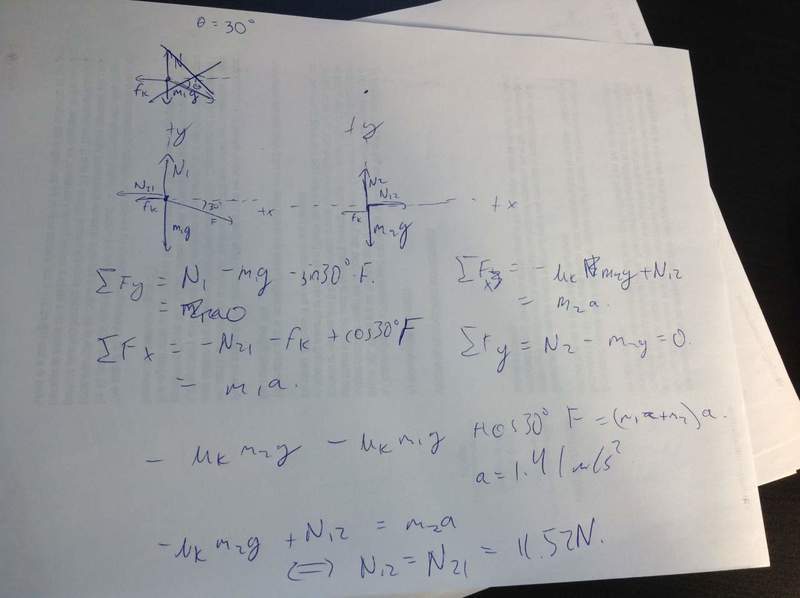 θ = 30°
N
fk
m1g
θ
+y
+y
N1
N21
fk
30°
F
+x
m1g
N2
N12
fk
m2g
+x
ΣFy = N1 - m1g - sin30°·F.
= 0
ΣFx = -N21 - fk + cos30°F
= m1a.
ΣFx = -μk m2g + N12
= m2a.
ΣFy = N2 - m2g = 0.
- μk m2g - μk m1g + cos30° F = (m1 + m2)a.
a = 1.41 m/s²
-μk m2g + N12 = m2a
⇔ N12 = N21 = 11.52N.